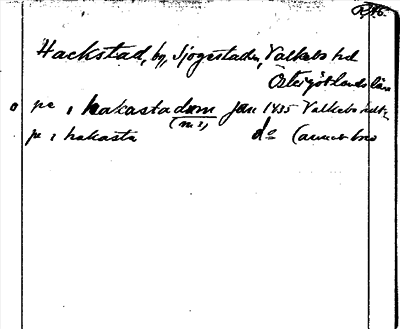 RAP.
Hackstad, by, Sjögestads, Valkebo hd
Östergötlands län
o pe i hakastadum jan 1435 Valkebo hdt
(ms)
pe i hakasta do (annat brev